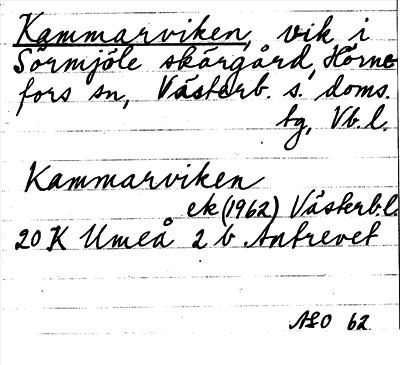 Kammarviken, vik i
Sörmjöle skärgård, Hörne-
fors sn, Västerb. s. doms.
tg, Vb. l.
Kammarviken
ek (1962) Västerb. l.
20 K Umeå 2 b Antrevet
62